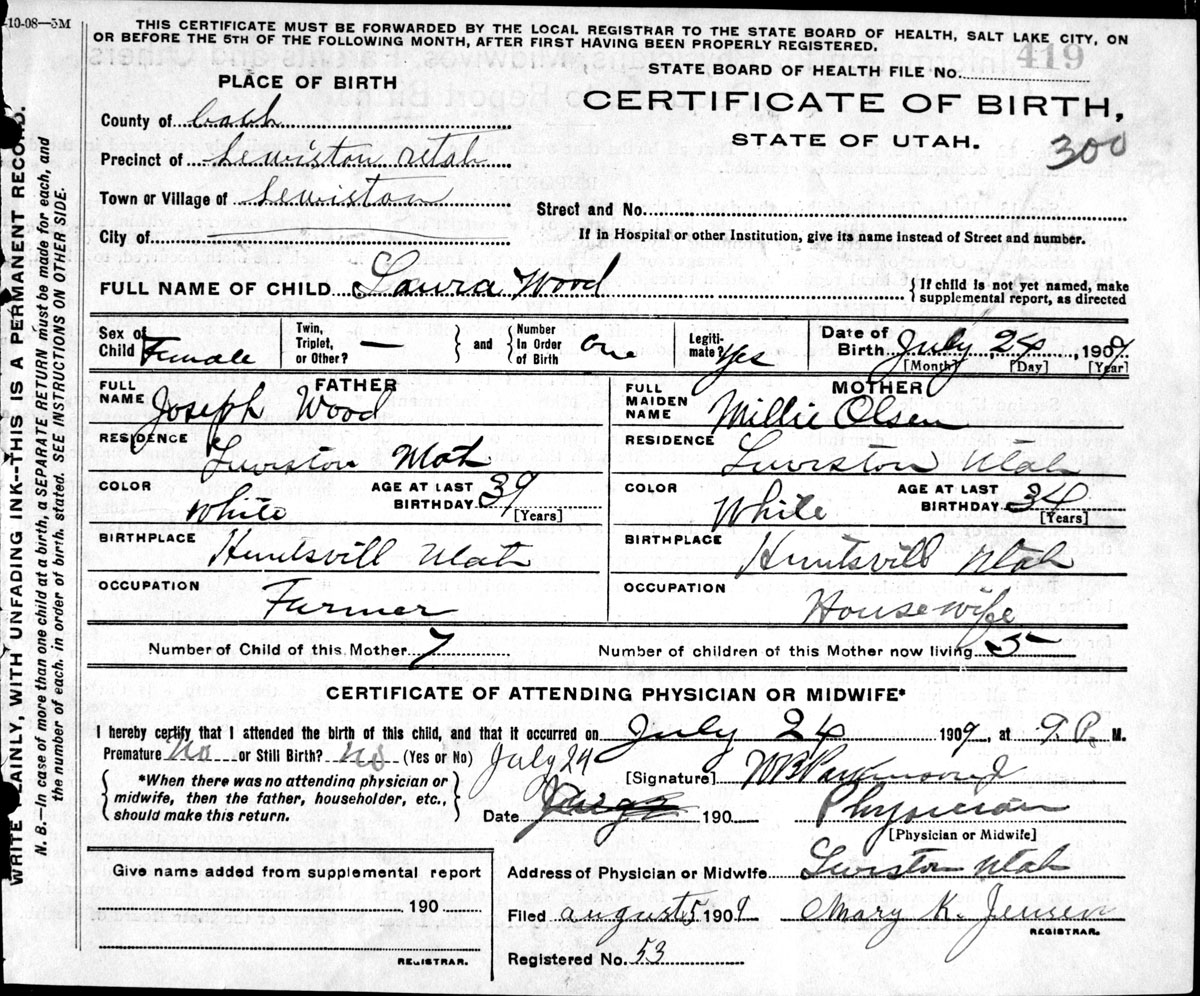 -10-08—5M
THIS CERTIFICATE MUST BE FORWARDED BY THE LOCAL REGISTRAR TO THE STATE BOARD OF HEALTH, SALT LAKE CITY, ON
OR BEFORE THE 5TH OF THE FOLLOWING MONTH, AFTER FIRST HAVING BEEN PROPERLY REGISTERED.
STATE BOARD OF HEALTH FILE No. 419
CERTIFICATE OF BIRTH,
STATE OF UTAH.
300
PLACE OF BIRTH
County of
Precinct of Lewiston Utah
Town or Village of Lewiston
City of
Street and No.
If in Hospital or other Institution, give its name instead of Street and number.
FULL NAME OF CHILD Laura Wood
If child is not yet named, make
supplemental report, as directed
Sex of Child Female
Twin, Triplet, or Other? —
and
Number In Order of Birth one
Legitimate? Yes
Date of Birth July 24, 1909
[Month] [Day] [Year]
FATHER
FULL NAME Joseph Wood
RESIDENCE Lewiston Utah
COLOR White
AGE AT LAST BIRTHDAY 39
[Years]
BIRTHPLACE Huntsvill Utah
OCCUPATION Farmer
MOTHER
FULL MAIDEN NAME Millie Olsen
RESIDENCE Lewiston Utah
COLOR White
AGE AT LAST BIRTHDAY 34
[Years]
BIRTHPLACE Huntsvill Utah
OCCUPATION Housewife
Number of Child of this Mother 7
Number of children of this Mother now living 5
CERTIFICATE OF ATTENDING PHYSICIAN OR MIDWIFE*
I hereby certify that I attended the birth of this child, and that it occurred on July 24 1909, at 9. P. M.
Premature No or Still Birth? No (Yes or No)
*When there was no attending physician or
midwife, then the father, householder, etc.,
should make this return.
July 24
[Signature]
Date 190
Physician
[Physician or Midwife]
Address of Physician or Midwife Lewiston Utah
Filed august 5 1909 Mary K. Jensen
REGISTRAR.
Registered No. 53
Give name added from supplemental report
190
REGISTRAR.
WRITE PLAINLY, WITH UNFADING INK--THIS IS A PERMANENT RECORD.
N. B.—In case of more than one child at a birth, a SEPARATE RETURN must be made for each, and
the number of each, in order of birth, stated. SEE INSTRUCTIONS ON OTHER SIDE.